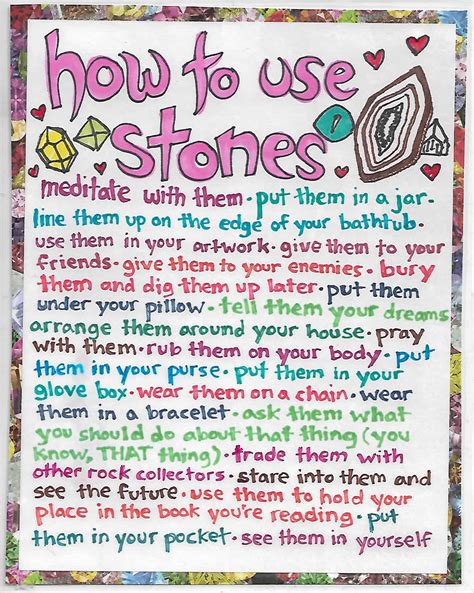 how to use
stones
meditate with them • put them in a jar •
line them up on the edge of your bathtub •
use them in your artwork • give them to your
friends • give them to your enemies • bury
them and dig them up later • put them
under your pillow • tell them your dreams
arrange them around your house • pray
with them • rub them on your body • put
them in your purse • put them in your
glove box • wear them on a chain • wear
them in a bracelet • ask them what
you should do about that thing (you
know, THAT thing) • trade them with
other rock collectors • stare into them and
see the future • use them to hold your
place in the book you're reading • put
them in your pocket • see them in yourself